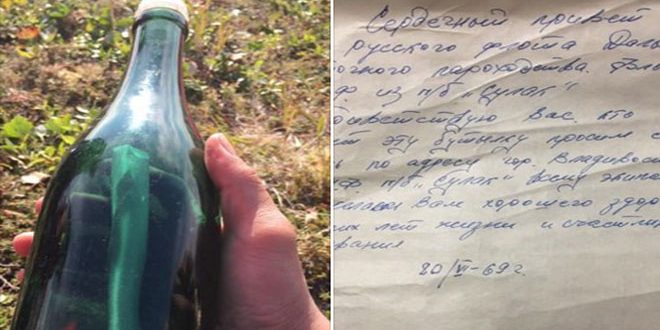 Сердечный привет
русского флота Даль
очного пароходства.
из п/б „Сулак“
ветствую Вас, кто
ет эту бутылку просим с
ь по адресу гор. Владивос
п/б „Сулак“ всему экипа
Вам хорошего здор
их лет жизни и счастли
вания
20/VI-69г.